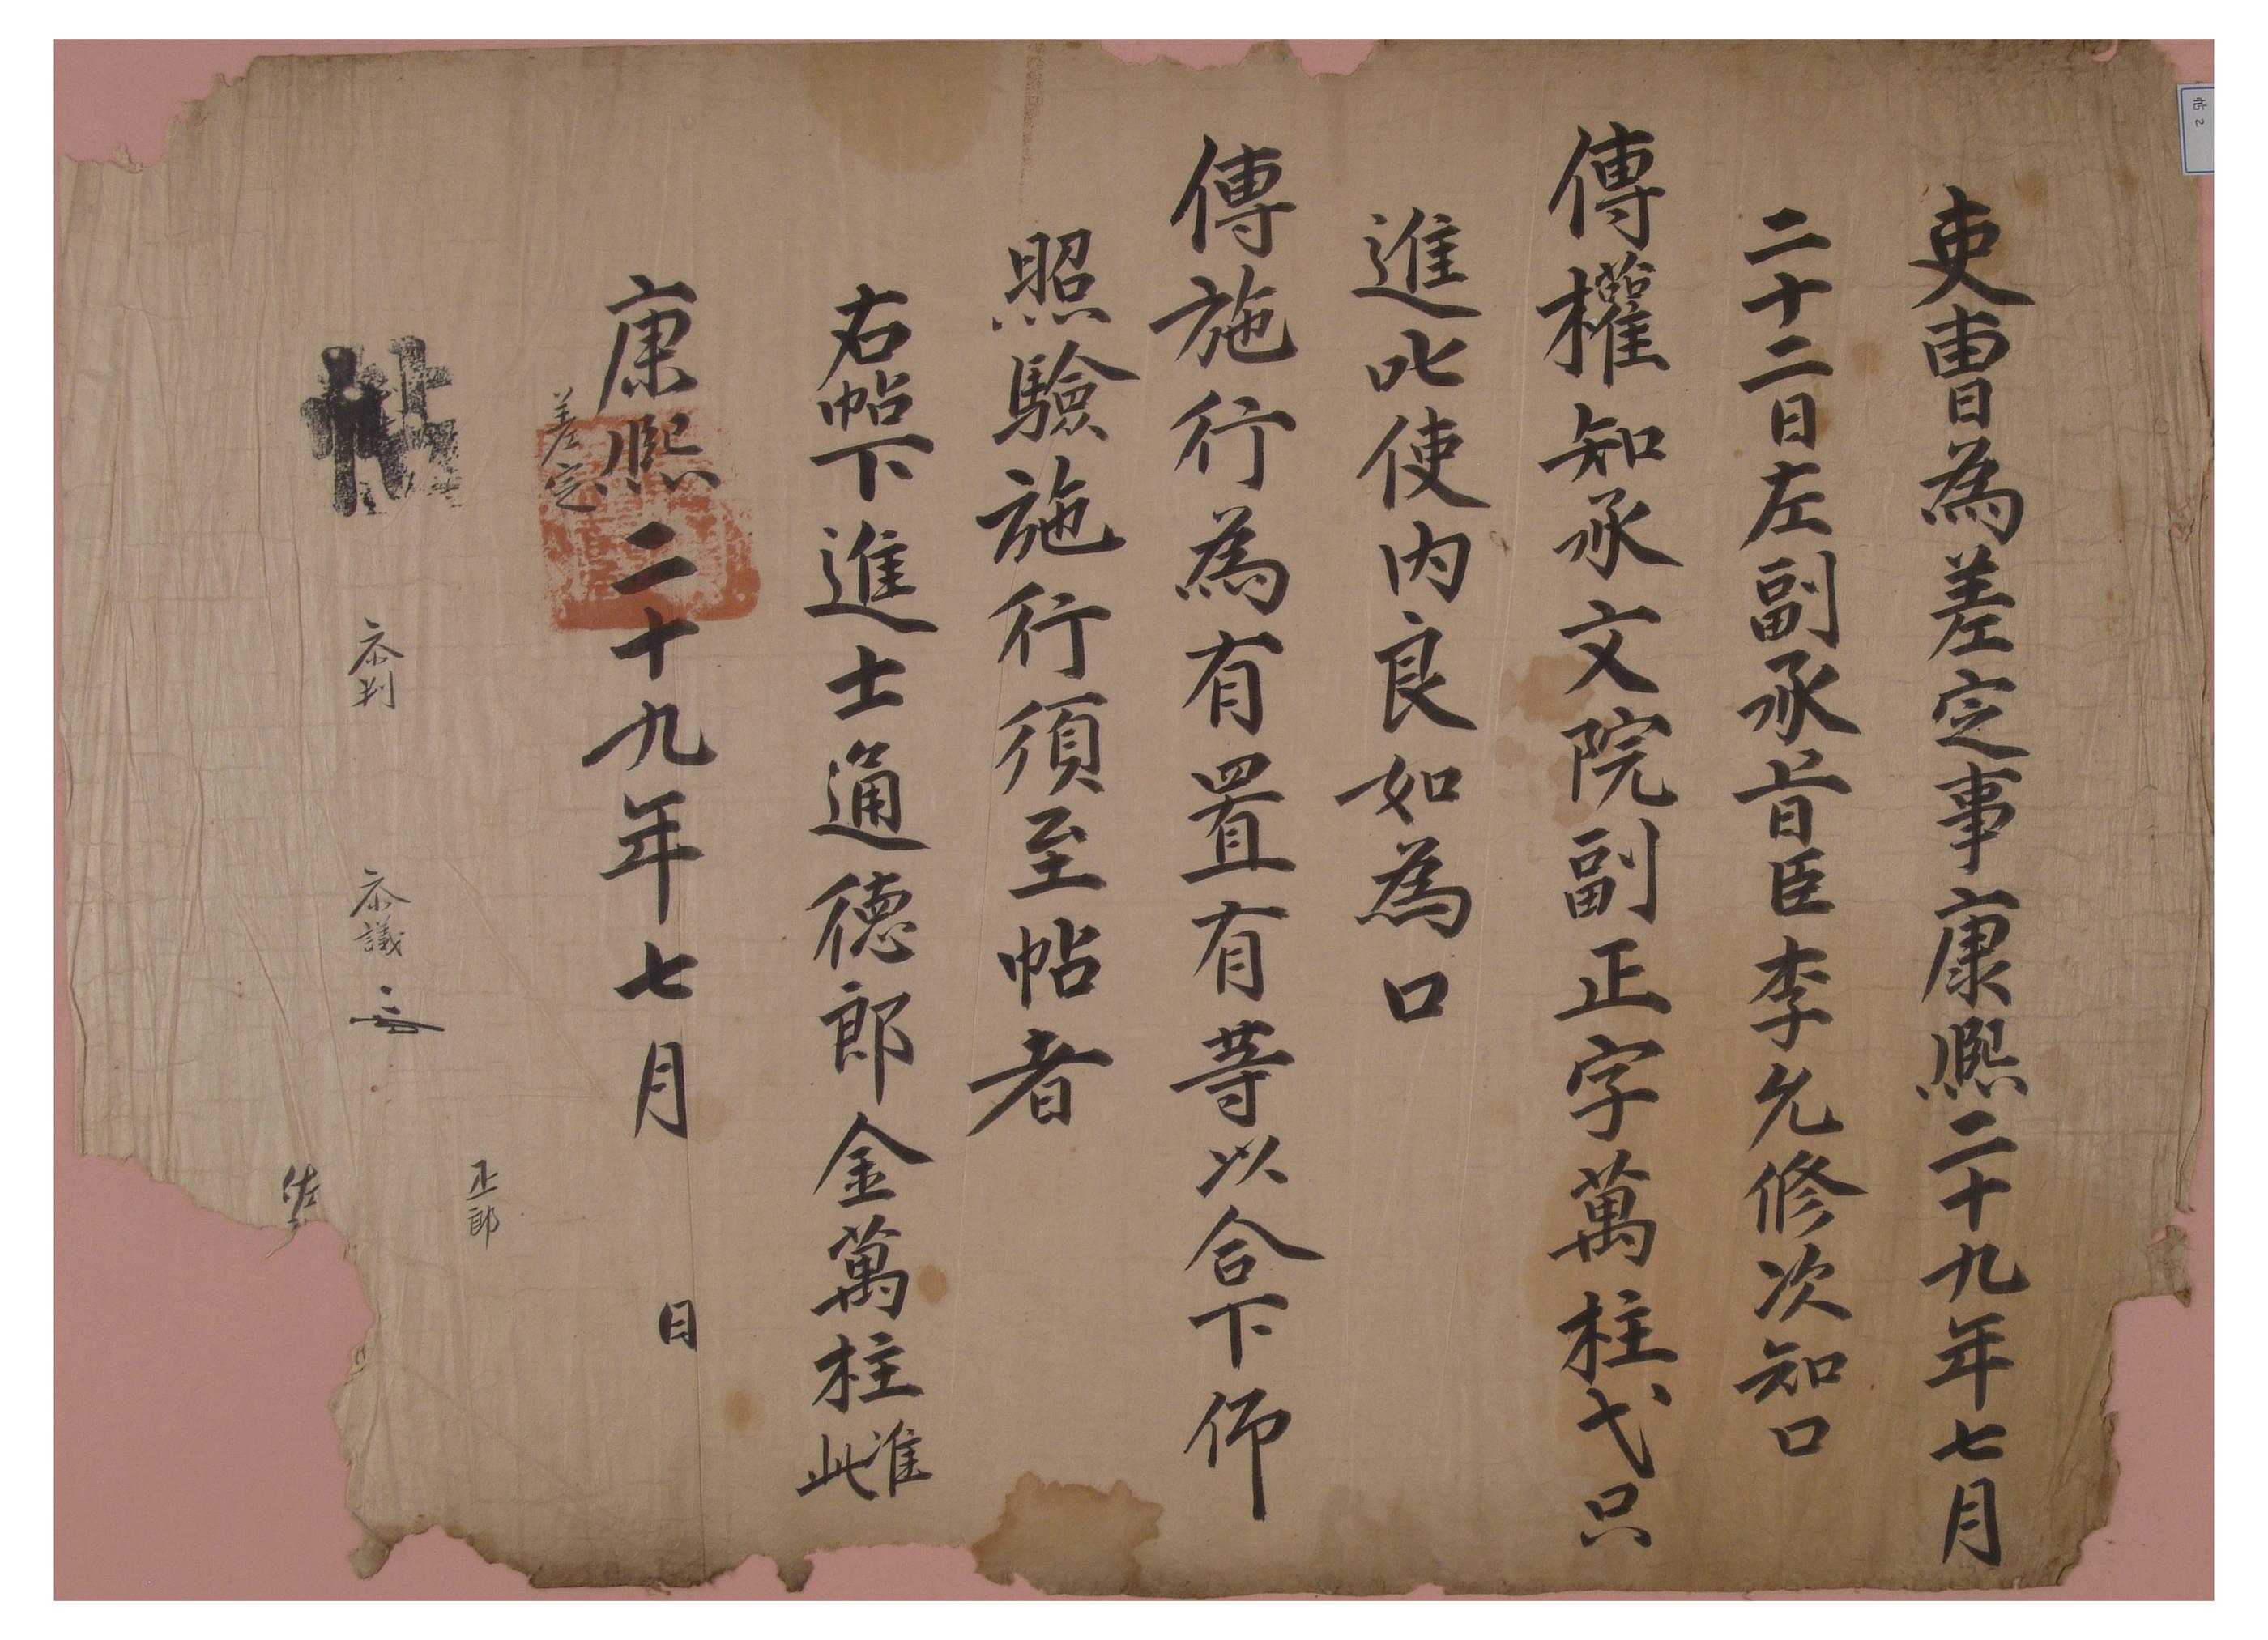 帖2
吏曹為差定事康熙二十九年七月
二十二日左副承旨臣李允修次知口
傳權知承文院副正字萬柱弋只
進叱使內良如為口
傳施行為有置有等以合下仰
照驗施行須至帖者
右帖下進士通德郎金萬柱準此
康熙二十九年七月 日
差定
帖
正郎
叅判 叅議
佐